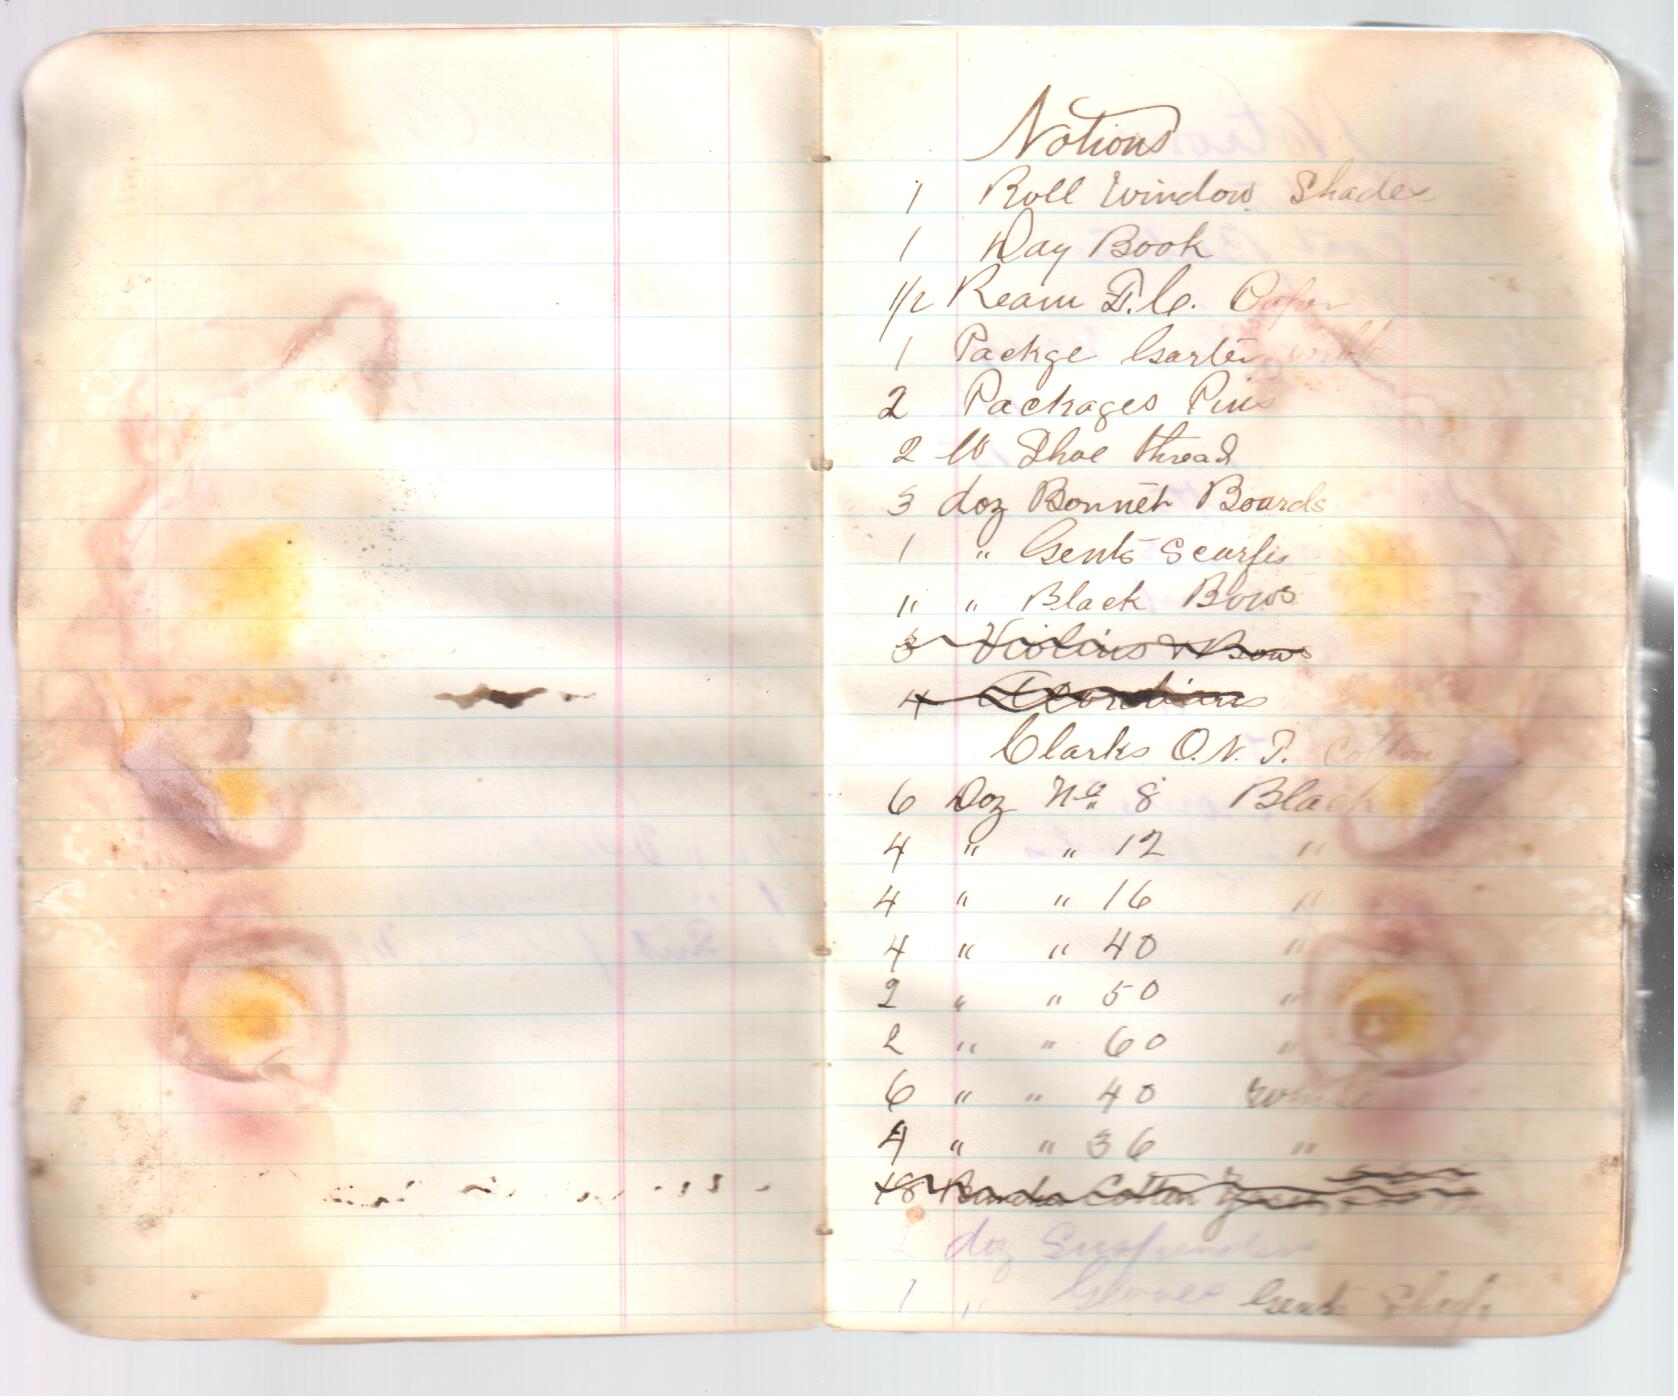 Notions
1 Roll Window Shades
1 Day Book
1/2 Ream F.C. Paper
1 Packge Garter webb
2 Packages Pins
2 lb Shoe thread
3 doz Bonnet Boards
1 " Gents Scarfs
" " Black Bows
3 Violins & Bows
4 Acordians
Clarks O.N.T. Cotton
6 Doz No 8 Black
4 " " 12 "
4 " " 16 "
4 " " 40 "
2 " " 50 "
2 " " 60 "
6 " " 40 white
4 " " 36 "
18 Bunds Cotton Yarn
doz Suspenders
1 " Gloves Gents